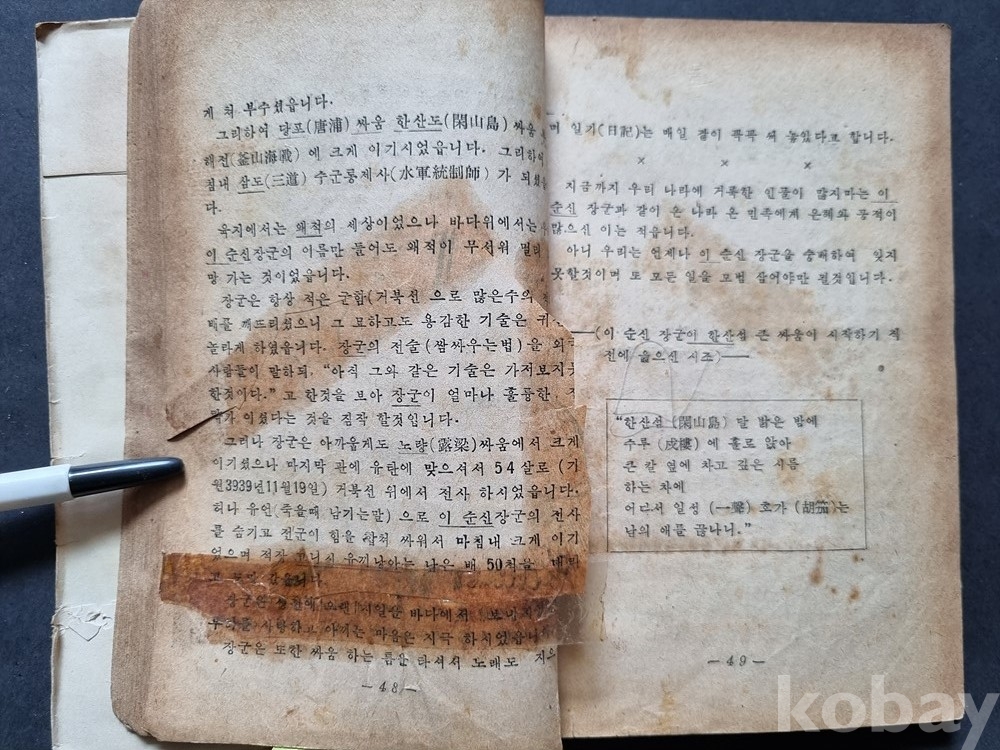 게 쳐 부수셨읍니다.
그리하여 당포(唐浦) 싸움 한산도(閑山島) 싸움
해전(釜山海戰) 에 크게 이기시었읍니다. 그리하여
침내 삼도(三道) 수군통제사(水軍統制師) 가 되셨
다.
육지에서는 왜적의 세상이었으나 바다위에서는
이 순신장군의 이름만 들어도 왜적이 무서워 멀리
망 가는 것이었읍니다.
장군은 항상 적은 군함(거북선 으로 많은수의 적
배를 깨뜨리셨으니 그 묘하고도 용감한 기술은 귀신
놀라게 하였읍니다. 장군의 전술(쌈싸우는법)을 외국
사람들이 말하되, “아직 그와 같은 기술은 가저보지못
한것이다.” 고 한것을 보아 장군이 얼마나 훌륭한
략가 이셨다는 것을 짐작 할것입니다.
그러나 장군은 아까웁게도 노량(露梁)싸움에서 크게
이기셨으나 마지막 판에 유탄에 맞으서서 54살로 (기
원3939년11월19일) 거북선 위에서 전사 하시었읍니다.
허나 유언(죽을때 남기는말) 으로 이 순신장군의 전사
를 숨기고 전군이 힘을 합쳐 싸워서 마침내 크게 이기
었으며 적장 남은 배 50척을
고
장군은 오랜 시일을 바다에서 보내시
우리를 사랑하고 아끼는 마음은 지극 하시었습니
장군은 또한 싸움 하는 틈을 타서서 노래도 지으
—48—
며 일기(日記)는 매일 같이 꼭꼭 써 놓았다고 합니다.
× × ×
지금까지 우리 나라에 거룩한 인물이 많지마는 이
순신 장군과 같이 온 나라 온 민족에게 은혜와 공적이
많으신 이는 적읍니다.
아니 우리는 언제나 이 순신 장군을 숭배하여 잊지
못할것이며 또 모든 일을 모범 삼어야만 될것입니다.
—(이 순신 장군이 한산섬 큰 싸움이 시작하기 제
전에 읊으신 시조)—
“한산섬 (閑山島) 달 밝은 밤에
수루 (戍樓) 에 홀로 앉아
큰 칼 옆에 차고 깊은 시름
하는 차에
어디서 일성 (一聲) 호가 (胡笳)는
남의 애를 끊나니.”
—49—
kobay